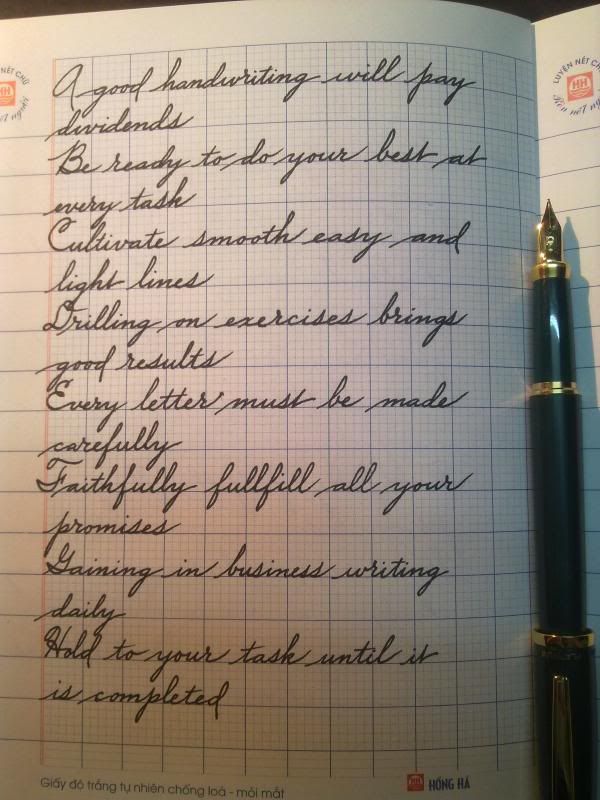 A good handwriting will pay
dividends
Be ready to do your best at
every task
Cultivate smooth easy and
light lines
Drilling on exercises brings
good results
Every letter must be made
carefully
Faithfully fullfill all your
promises
Gaining in business writing
daily
Hold to your task until it
is completed
Giấy độ trắng tự nhiên chống loá - mỏi mắt
HH HỒNG HÀ
NÉT CHỮ
HH
nết người
LUYỆN NÉT CH
HH
Rèn nết người